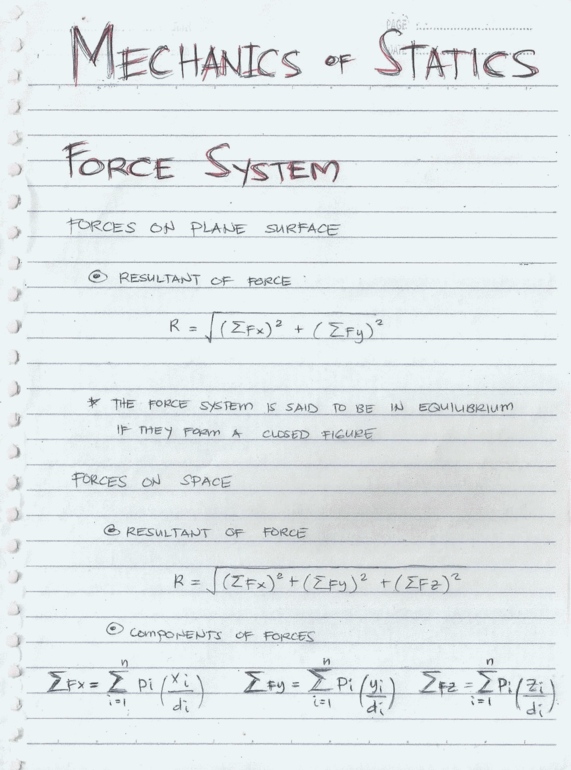 PAGE :
MECHANICS OF STATICS
FORCE SYSTEM
FORCES ON PLANE SURFACE
RESULTANT OF FORCE
R = √((ΣFx)² + (ΣFy)²)
* THE FORCE SYSTEM IS SAID TO BE IN EQUILIBRIUM
IF THEY FORM A CLOSED FIGURE
FORCES ON SPACE
RESULTANT OF FORCE
R = √((ΣFx)² + (ΣFy)² + (ΣFz)²)
COMPONENTS OF FORCES
ΣFx = Σ_{i=1}^{n} Pi (xi/di) ΣFy = Σ_{i=1}^{n} Pi (yi/di) ΣFz = Σ_{i=1}^{n} Pi (zi/di)